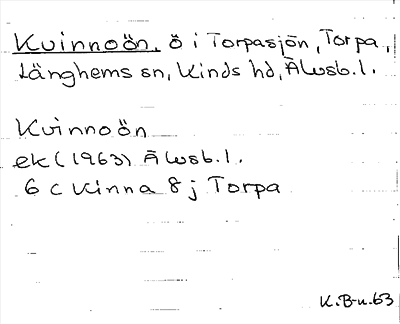 Kvinnoön, ö i Torpasjön, Torpa,
Länghems sn, Kinds hd, Älvsb.l.
Kvinnoön
ek (1963) Älvsb.l.
6 c Kinna 8 j Torpa
K.B-n.63